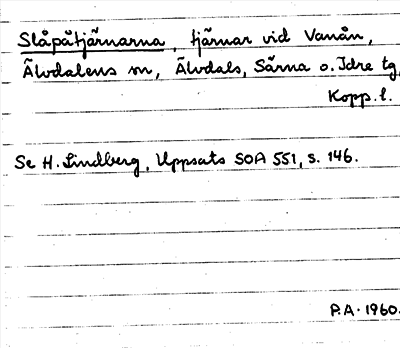 Slåpåtjärnarna, tjärnar vid Vanån,
Älvdalens sn, Älvdals, Särna o. Idre tg,
Kopp. l.
Se H. Lindberg, Uppsats SOA 551, s. 146.
P.A. 1960.